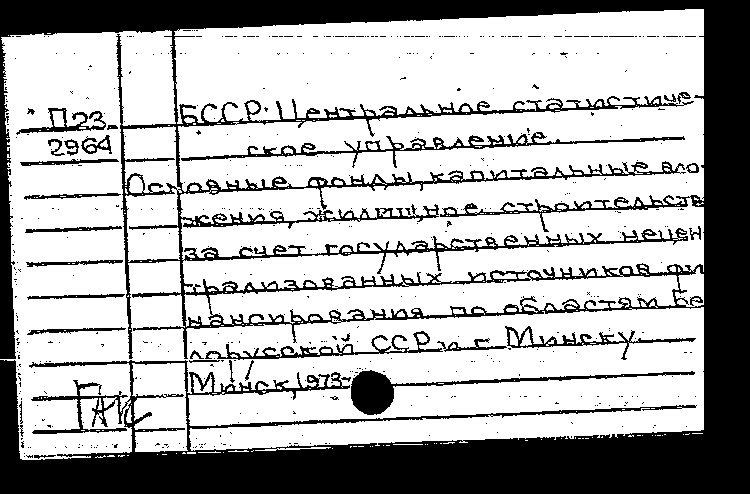 П23
2964
БССР. Центральное статистиче-
ское управление.
Основные фонды, капитальные вло-
жения, жилищное строительств
за счет государственных нецен
трализованных источников фи
нансирования по областям Бе
лорусской ССР и г. Минску.
Минск, 1973-